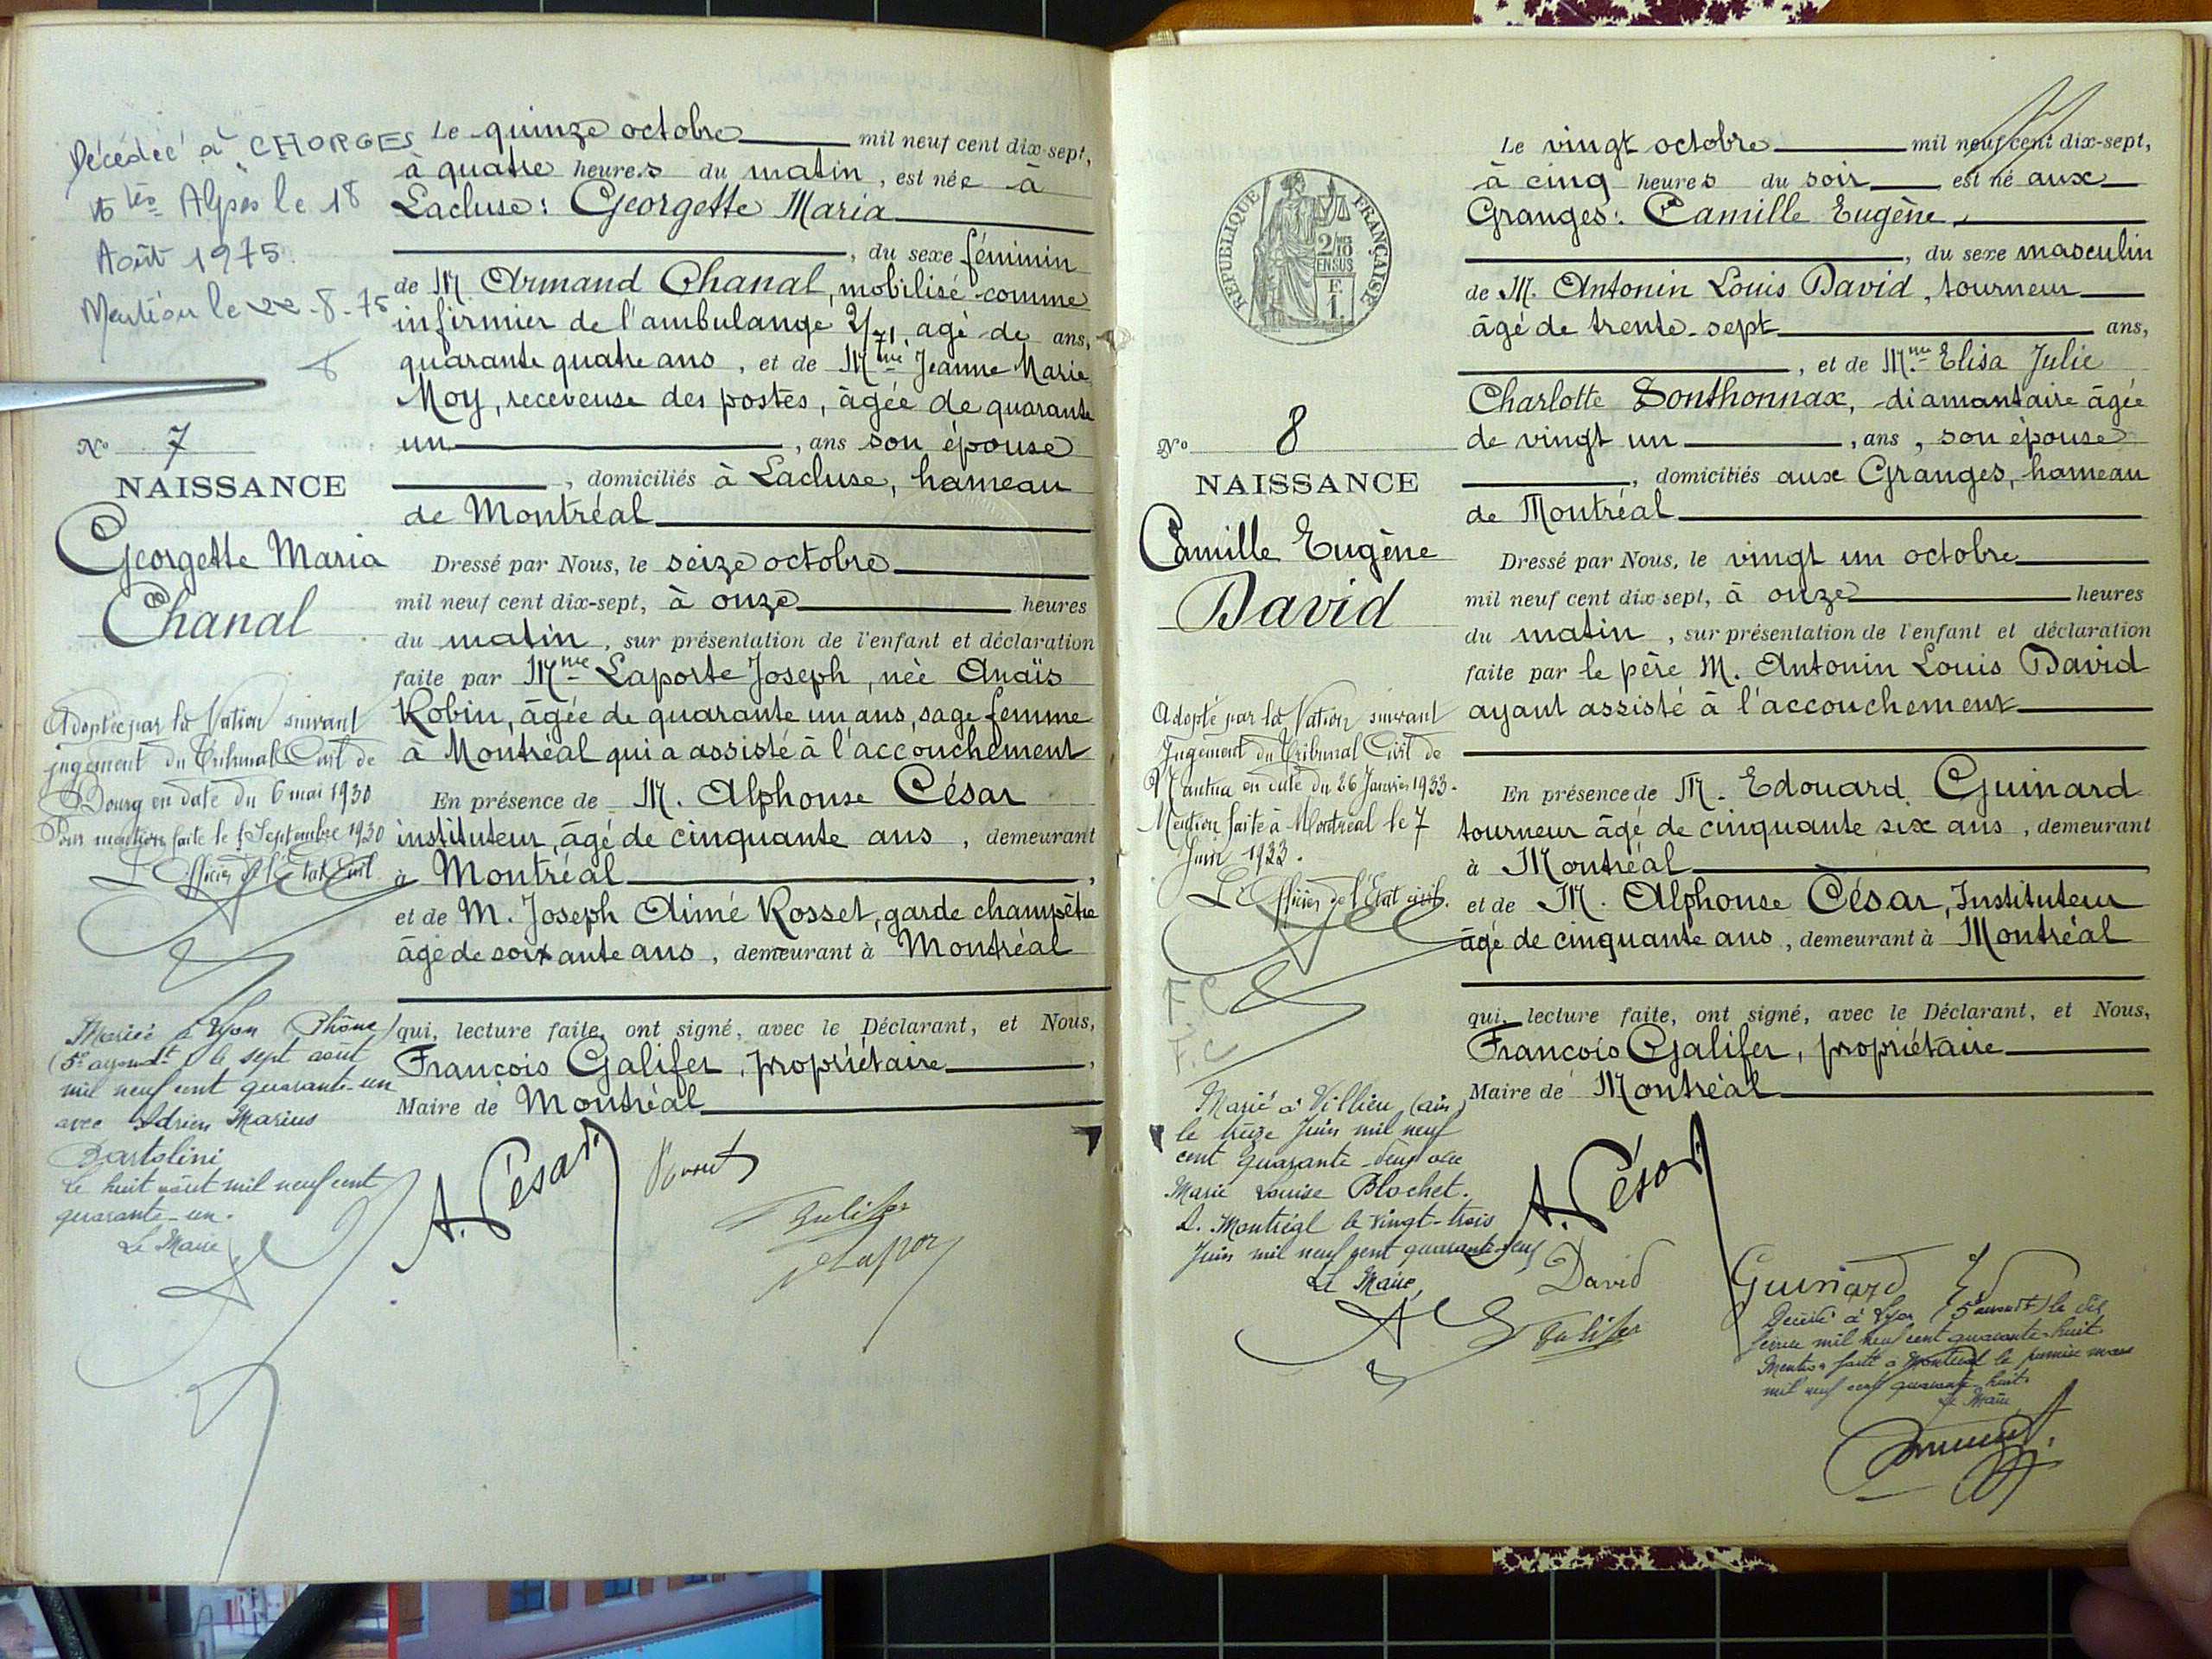 Décédée à CHORGES
Htes Alpes le 18
Août 1975.
Mention le 22-8-75
N° 7
NAISSANCE
Georgette Maria
Chanal
Adoptée par la Nation suivant
jugement du Tribunal Civil de
Bourg en date du 6 mai 1930
Pour mention faite le Septembre 1930
L'Officier de l'Etat Civil
Mariée à Lyon (Rhône)
(5e arrondt) le sept août
mil neuf cent quarante-un
avec Adrien Marius
Bartolini
Le huit août mil neuf cent
quarante-un.
Le Maire
Le quinze octobre mil neuf cent dix-sept,
à quatre heures du matin, est née à
Lacluse: Georgette Maria
, du sexe féminin
de M. Armand Chanal, mobilisé comme
infirmier de l'ambulance 2/71, agé de ans,
quarante quatre ans, et de Mme Jeanne Marie
Moy, receveuse des postes, âgée de quarante
un , ans son épouse
, domiciliés à Lacluse, hameau
de Montréal
Dressé par Nous, le seize octobre
mil neuf cent dix-sept, à onze heures
du matin, sur présentation de l'enfant et déclaration
faite par Mme Laporte Joseph, née Anaïs
Robin, âgée de quarante un ans, sage femme
à Montréal qui a assisté à l'accouchement
En présence de M. Alphonse César
instituteur, âgé de cinquante ans, demeurant
à Montréal ,
et de M. Joseph Aimé Rosset, garde champêtre
âgé de soixante ans, demeurant à Montréal
qui, lecture faite, ont signé, avec le Déclarant, et Nous,
François Galifer, propriétaire ,
Maire de Montréal
A. César
Galifer
Lapor
REPUBLIQUE FRANÇAISE
2/10
EN SUS
F.
1.
N° 8
NAISSANCE
Camille Eugène
David
Adopté par la Nation suivant
Jugement du Tribunal Civil de
Nantua en date du 26 Janvier 1933.
Mention faite à Montréal le 7
Juin 1933.
L'Officier de l'Etat civil.
F.C
F.C
F.C
Marié à Villieu (ain)
le treize Juin mil neuf
cent quarante-deux avec
Marie Louise Blochet.
A. Montréal le vingt-trois
Juin mil neuf cent quarante-deux
Le Maire,
Le vingt octobre mil neuf cent dix-sept,
à cinq heures du soir est né aux
Granges: Camille Eugène,
, du sexe masculin
de M. Antonin Louis David, tourneur
âgé de trente-sept ans,
, et de Mme Elisa Julie
Charlotte Sonthonnax, diamantaire âgée
de vingt un , ans, son épouse
, domiciliés aux Granges, hameau
de Montréal
Dressé par Nous, le vingt un octobre
mil neuf cent dix-sept, à onze heures
du matin, sur présentation de l'enfant et déclaration
faite par le père M. Antonin Louis David
ayant assisté à l'accouchement
En présence de M. Edouard Guinard
tourneur âgé de cinquante six ans, demeurant
à Montréal
et de M. Alphonse César, Instituteur
âgé de cinquante ans, demeurant à Montréal
qui, lecture faite, ont signé, avec le Déclarant, et Nous,
François Galifer, propriétaire
Maire de Montréal
A. César
David
Guinard
Galifer
Décédé à Lyon (5e arrondt) le dix
février mil neuf cent quarante-huit.
Mention faite à Montréal le premier mars
mil neuf cent quarante-huit.
Le Maire